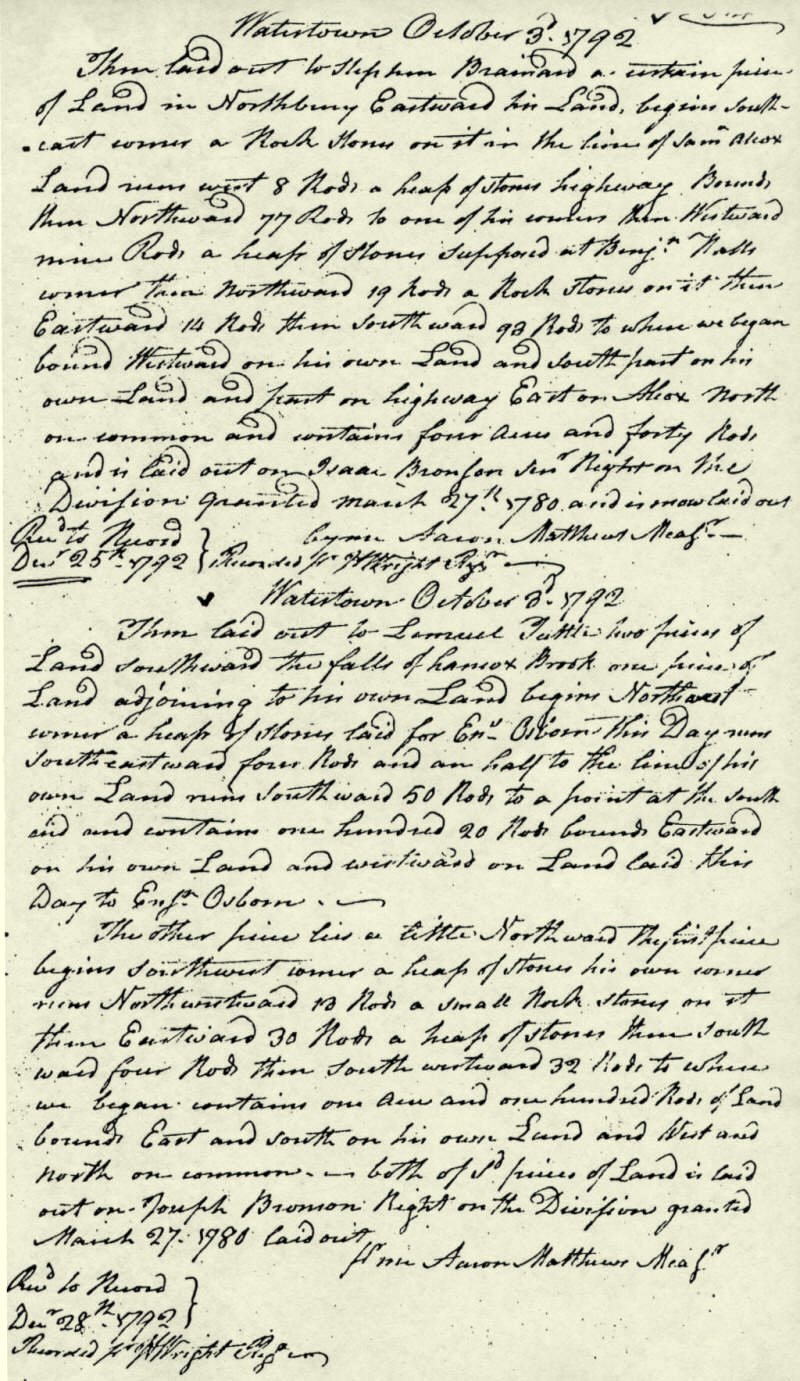 Watertown October 3d. 1792
Then laid out to Stephen Brainard a certain piece
of Land in Northbury Eastward his Land, begins South-
east corner a Rock stones on it in the line of Samll Alcox
Land runs west 8 Rods a heap of stones highway Bounds
then Northward 77 Rods to one of his corners then Westward
nine Rods a heap of stones supposed at Benjn.
corner then Northward 19 Rods a Rock stones on it then
Eastward 14 Rods then Southward 93 Rods to where we began
bound Westward on his own Land and South part on his
own Land and part on highway East on Alcox North
on common and contains four acres and forty Rods
and is laid out on Isaac Bronson Senr Right on the
Division granted march 27th. 1780 and is now laid out
by me Aaron Matthews Measr.
Recd to Record
Decr 25th. 1792
Recorded pr W Wright Regr
Watertown October 3d. 1792
Then laid out to Lemuel Tuttle two pieces of
Land southward the falls of hancox Brook one piece of
Land adjoining to his own Land begins Northwest
corner a heap of stones laid for Ens. Osborn this Day runs
Southeastward four Rods and an half to the line of his
own Land runs Southward 50 Rods to a point at the South
end and contains one hundred 20 Rods bounds Eastward
on his own Land and westward on Land laid this
Day to Ensn. Osborn.
The other piece lies a little Northward the first piece
begins Southwest corner a heap of stones his own corner
runs Northwestward 13 Rods a small Rock stones on it
then Eastward 30 Rods a heap of stones then South
ward four Rods then South westward 32 Rods to where
we began contains one acre and one hundred Rods of Land
bounds East and South on his own Land and West and
North on common. both of sd pieces of Land is laid
out on Joseph Bronson Right on the Division granted
March 27. 1780 laid out
pr me Aaron Matthews Measr
Recd to Record
Decr 28th. 1792
Recorded pr W Wright Regr